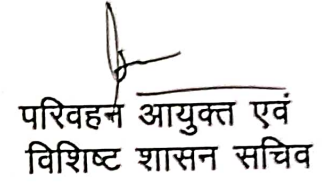 परिवहन आयुक्त एवं
विशिष्ट शासन सचिव